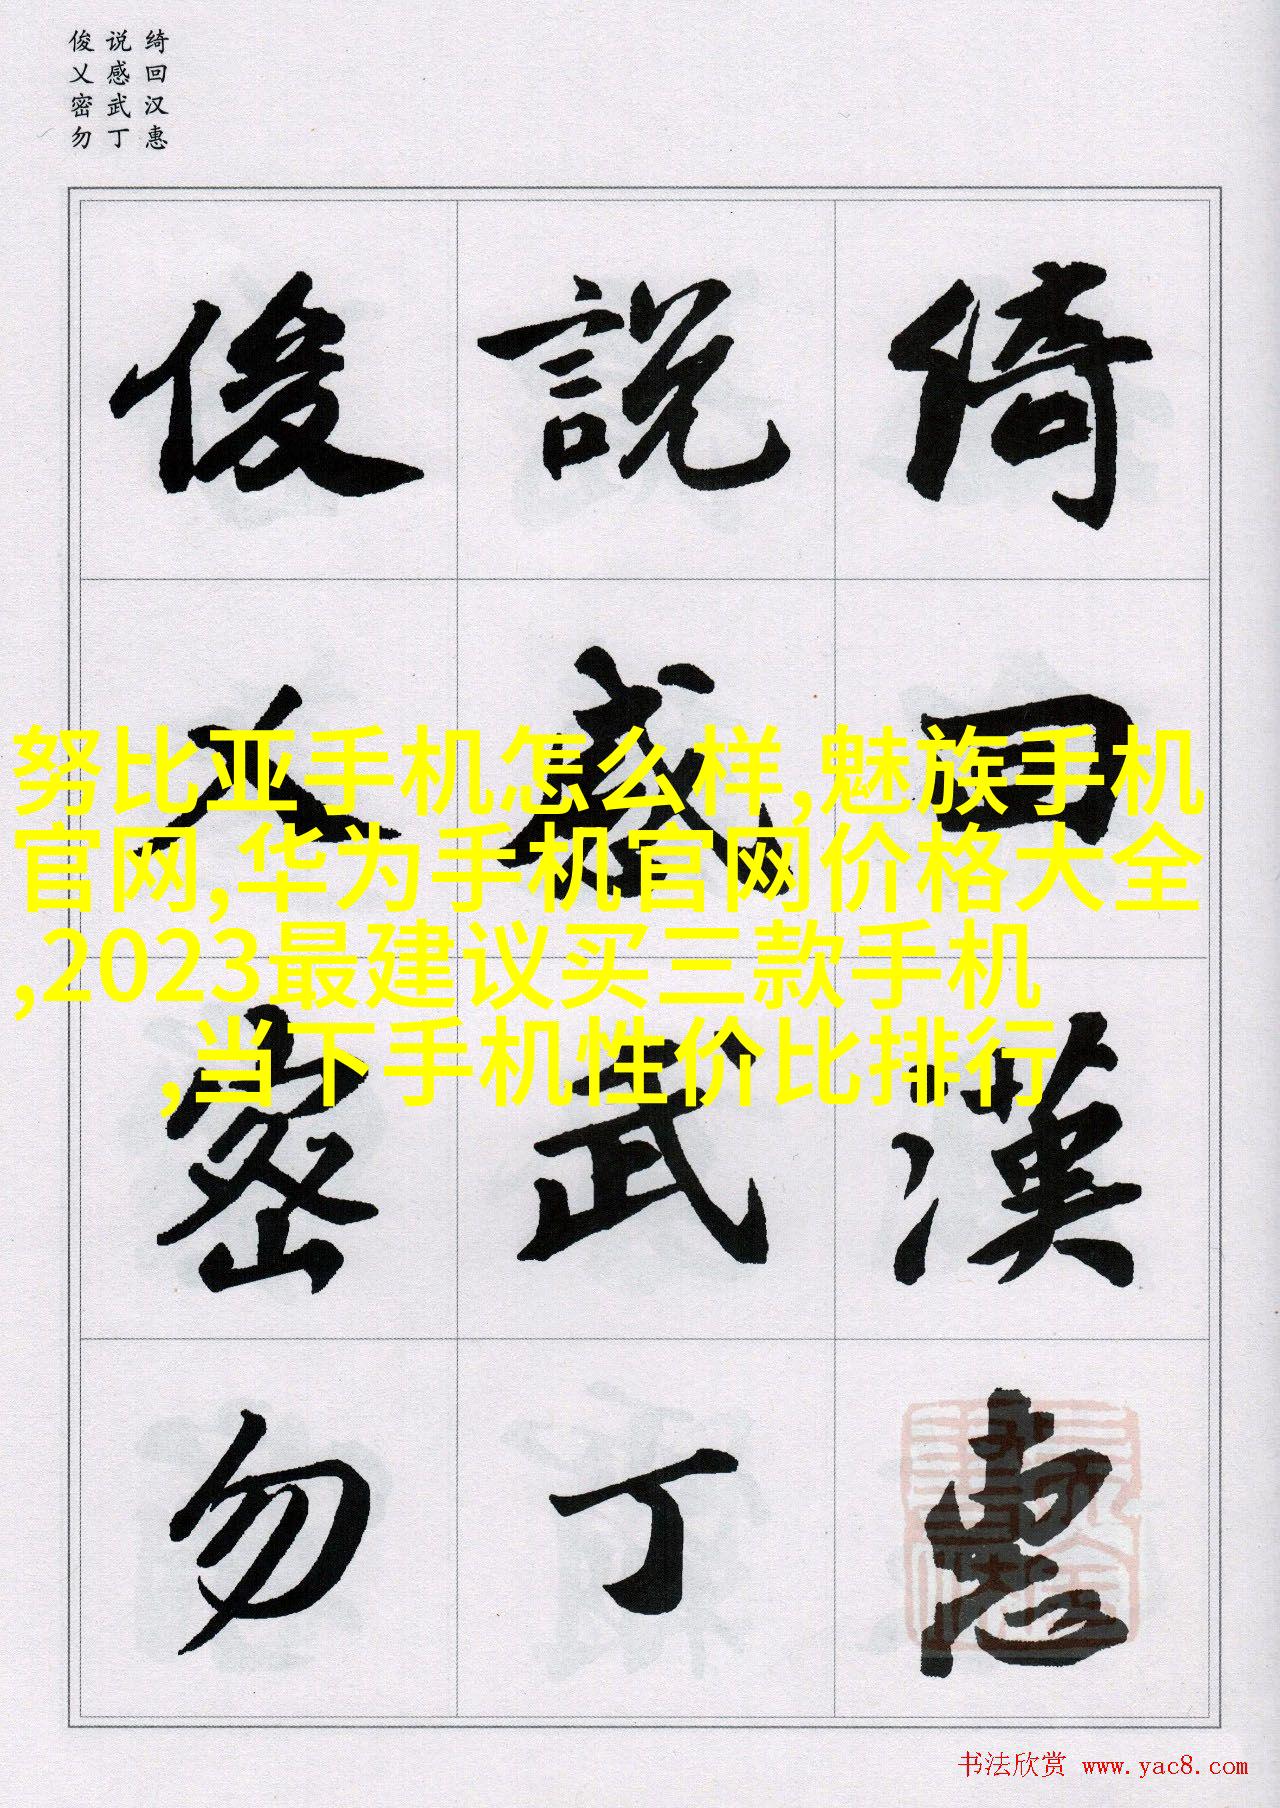 俊 说 绮
乂 感 回
密 武 汉
勿 丁 惠
俊 說 綺
乂 感 回
努比亚手机怎么样,魅族手机
官网,华为手机官网价格大全
,2023最建议买三款手机
,当下手机性价比排行
密 武 漢
勿 丁 惠
书法欣赏 www.yac8.com